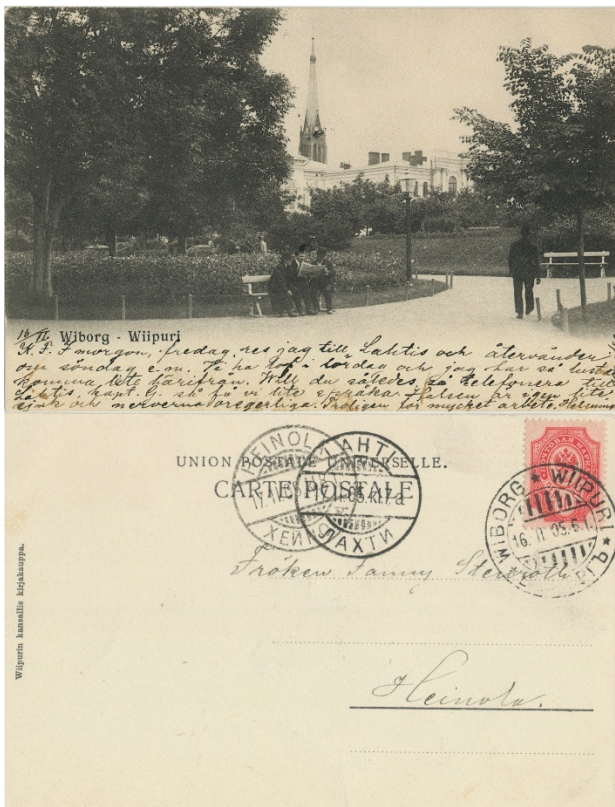 16/II Wiborg - Wiipuri
K. F. I morgon, fredag, res jag till Lahtis och återvänder
om söndag e.m. Få ha lof i lördag och jag har så lust att
komma lite härifrån. Will du således så telefonera till
Lahtis, så få vi lite språka. Halsen är igen lite
sjuk och nerverna oregerliga. Troligen för mycket arbete.
UNION POSTALE UNIVERSELLE.
CARTE POSTALE
HEINOLA
ХЕЙН
LAHTI
ЛАХТИ
WIBORG * WIIPURI
16. II 05. 6 I.
Fröken Fanny Stenroth
Heinola.
Wiipurin kansallis kirjakauppa.